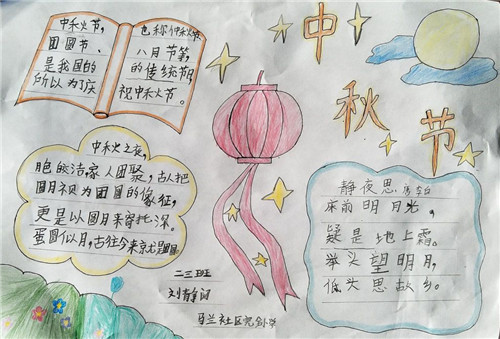 中秋节
中秋节，
团圆节、
是我国的
所以为了庆
也称仲秋
八月节等，
的传统节
祝中秋节。
中秋之夜，
皎洁，家人团聚，古人把
圆月视为团圆的象征，
更是以圆月来寄托深。
蛋圆似月，古往今来
静夜思 李白
床前明月光，
疑是地上霜。
举头望明月，
低头思故乡。
二三班
刘静
马兰社区完全小学